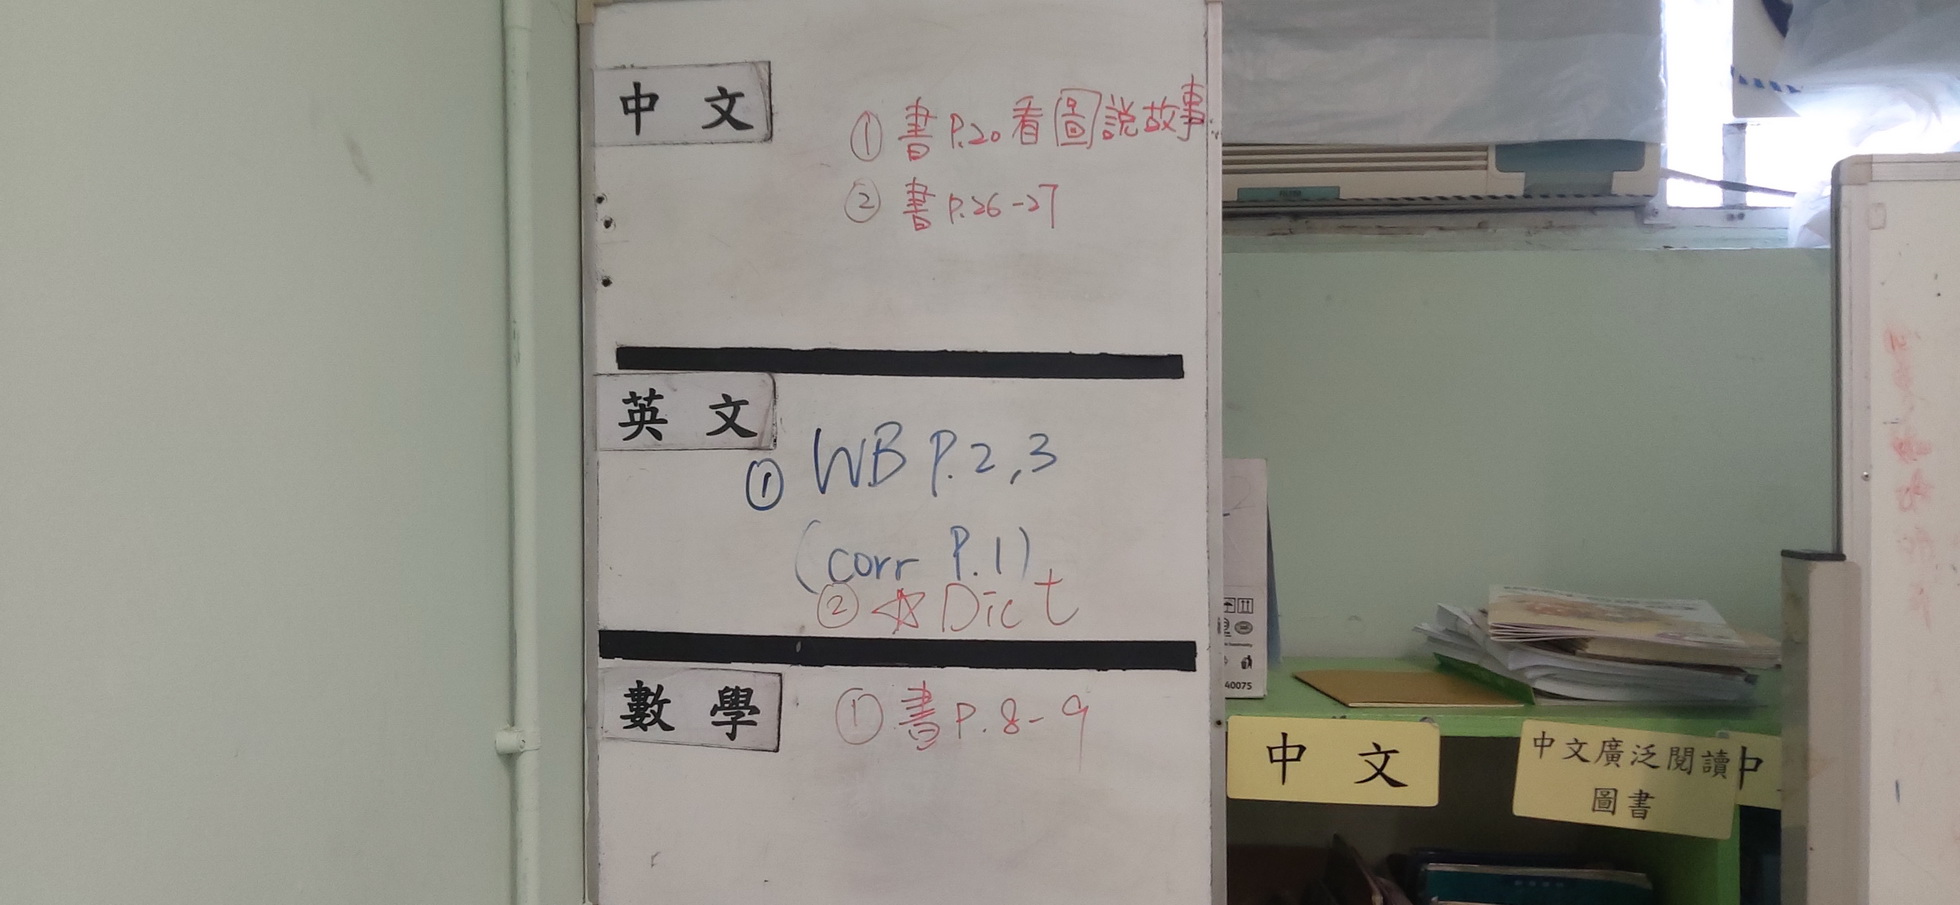 中 文
① 書 P.20 看圖說故事
② 書 P.26-27
英 文
① W.B P.2,3
(corr P.1)
② ☆ Dict
數 學
① 書 P.8-9
40075
中 文
中文廣泛閱讀
圖書
中